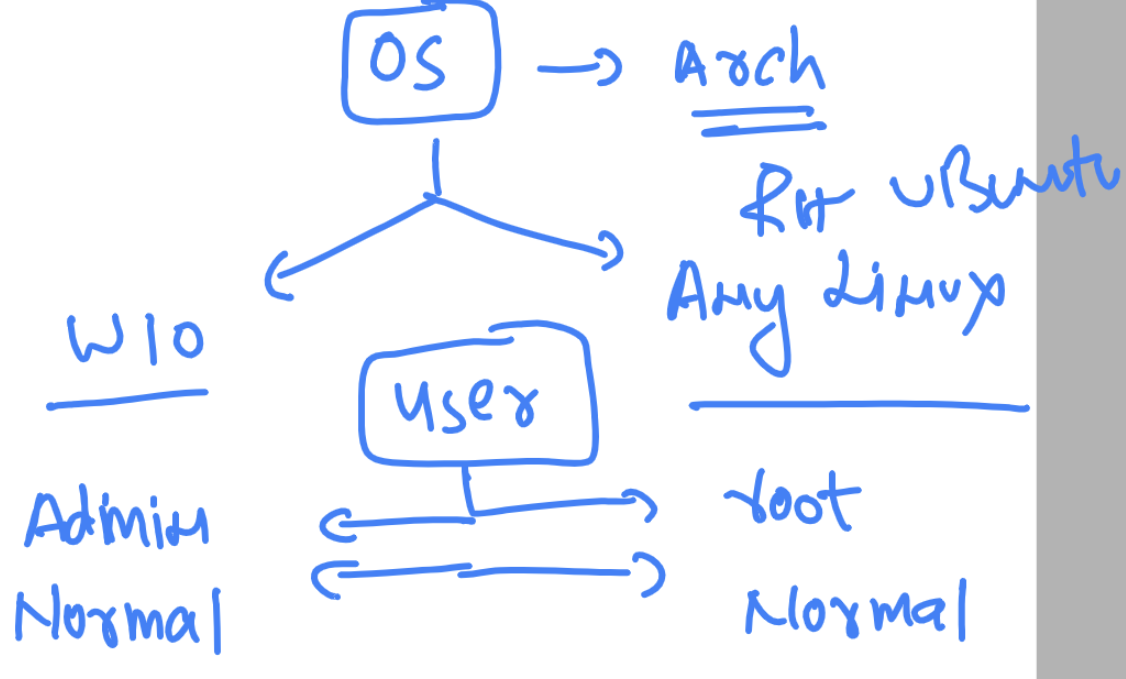 OS → Arch
RH UBuntu
Any Linux
W10
User
Admin root
Normal Normal